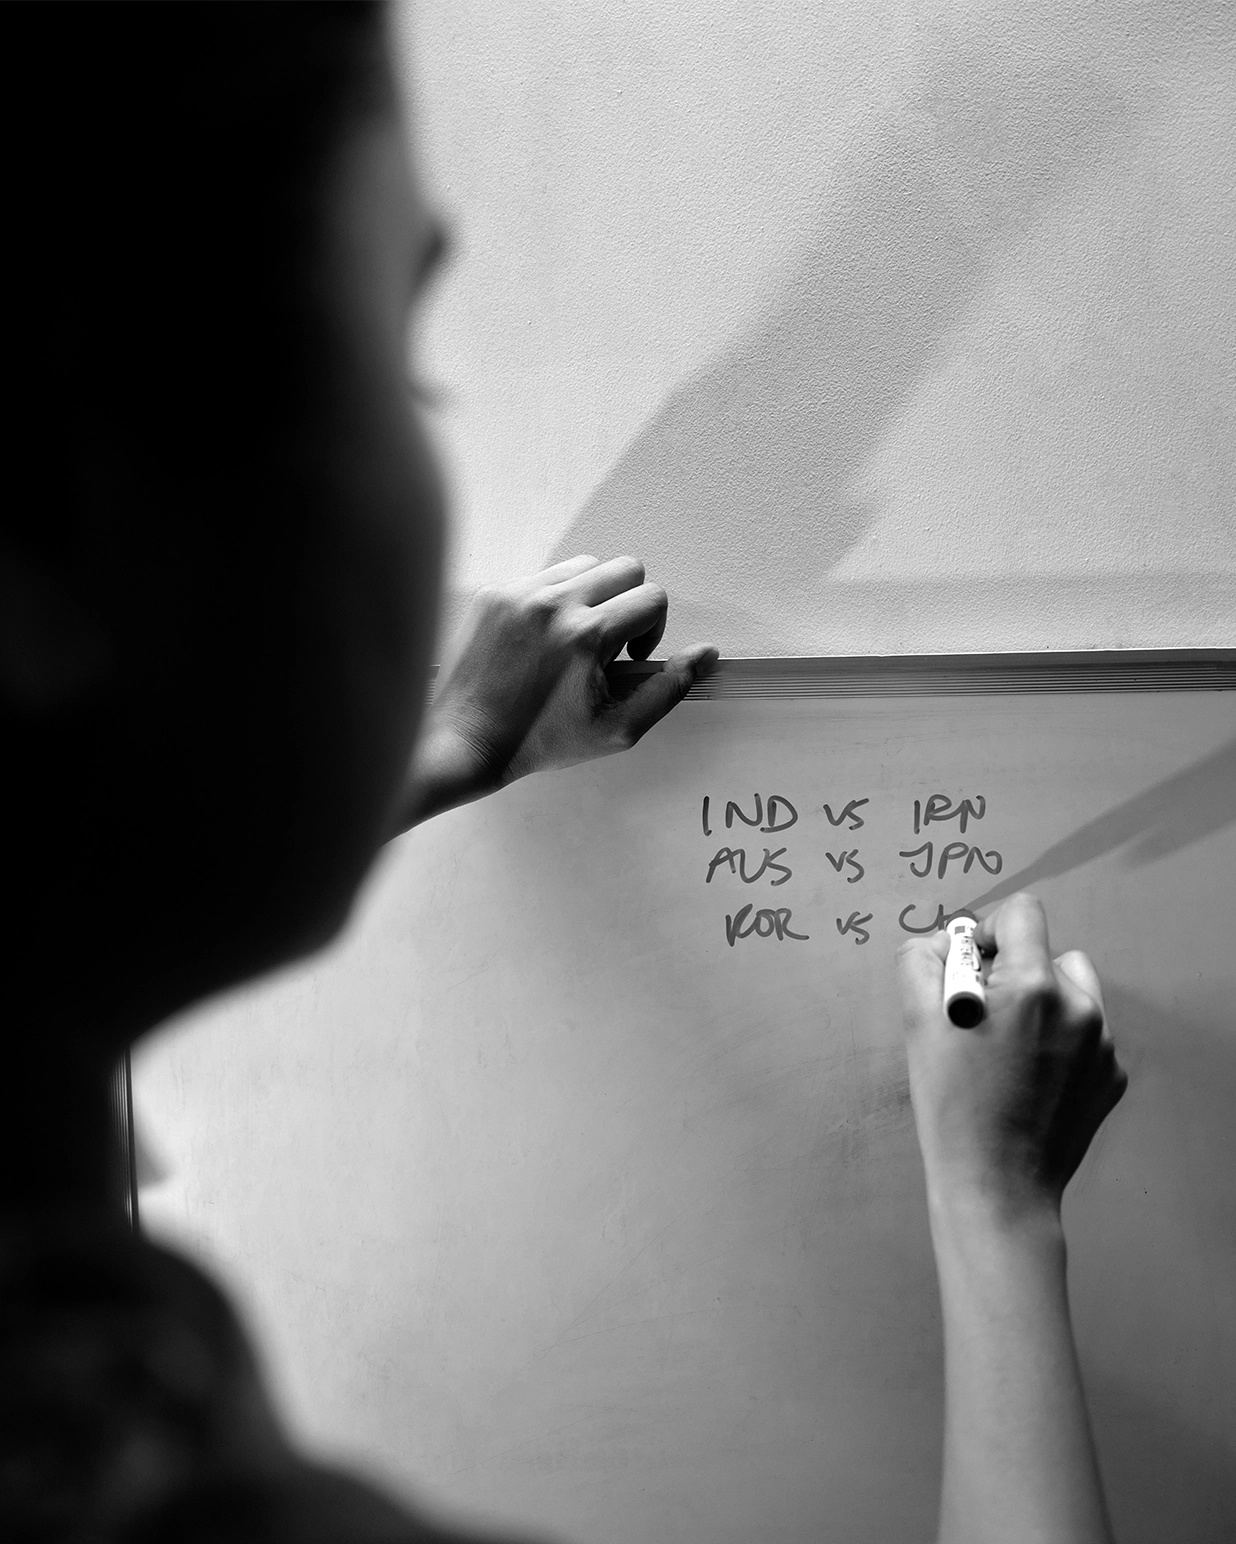 IND vs IRN
AUS vs JPN
KOR vs